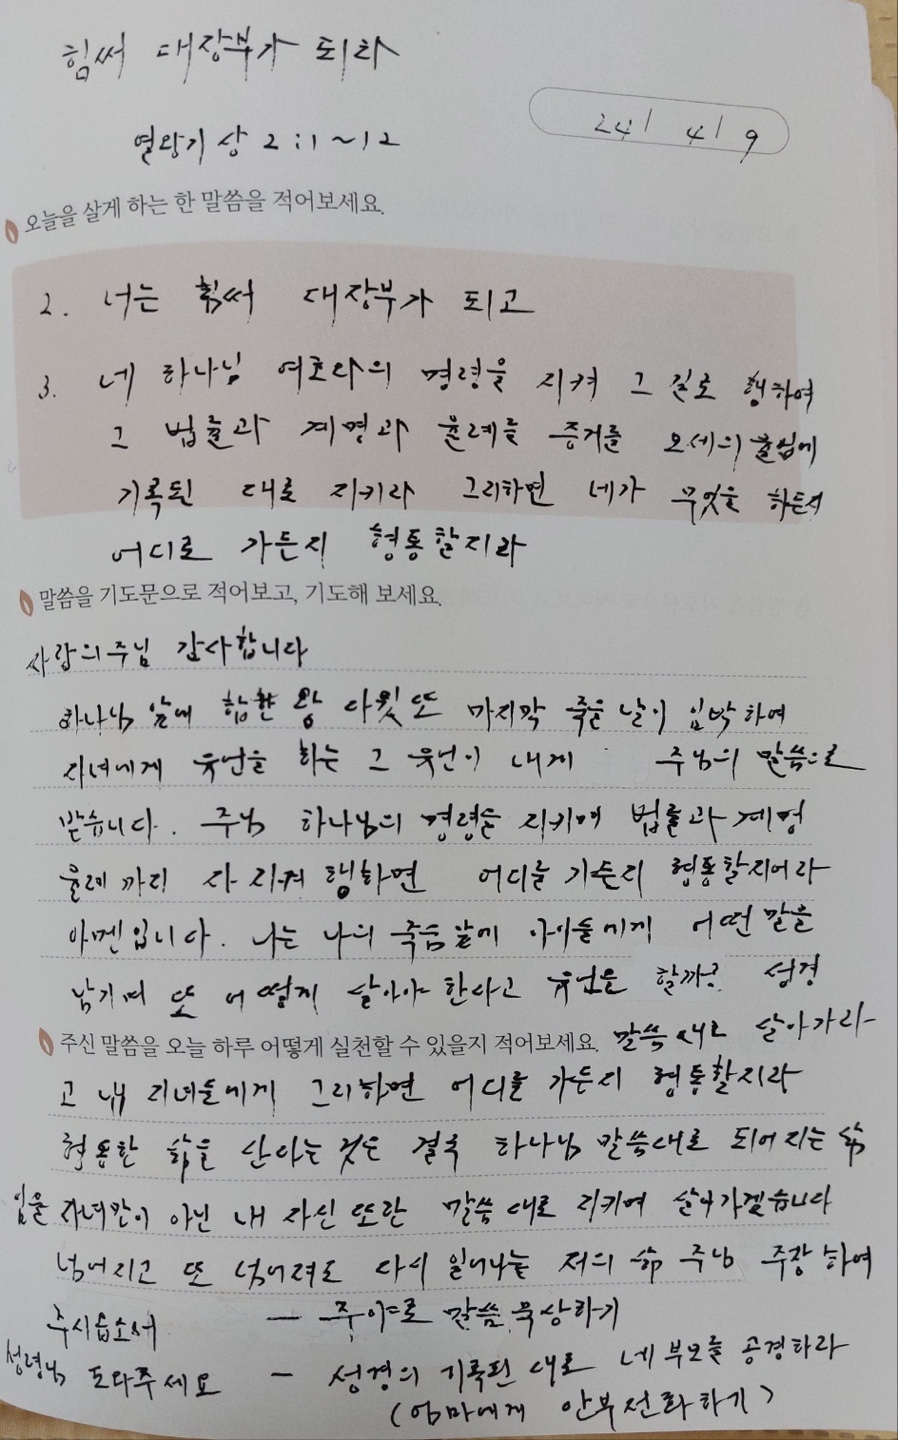 힘써 대장부가 되라
24/ 4/ 9
열왕기 상 2:1~12
오늘을 살게 하는 한 말씀을 적어보세요.
2. 너는 힘써 대장부가 되고
3. 네 하나님 여호와의 명령을 지켜 그 길로 행하여
그 법률과 계명과 율례를 증거를 모세의 율법에
기록된 대로 지키라 그리하면 네가 무엇을 하든지
어디로 가든지 형통할지라
말씀을 기도문으로 적어보고, 기도해 보세요.
사랑의주님 감사합니다
하나님 앞에 합한 왕 다윗도 마지막 죽을 날이 임박하여
자녀에게 유언을 하는 그 유언이 내게 주님의 말씀으로
받습니다. 주님 하나님의 명령을 지키며 법률과 계명
율례까지 다 지켜 행하면 어디를 가든지 형통할지어라
아멘입니다. 나는 나의 죽음앞에 아이들에게 어떤 말을
남기며 또 어떻게 살아야 한다고 유언을 할까? 성경
주신 말씀을 오늘 하루 어떻게 실천할 수 있을지 적어보세요. 말씀대로 살아가라
고 내 자녀들에게 그리하면 어디를 가든지 형통할지라
형통한 삶을 산다는 것은 결국 하나님 말씀대로 되어지는 삶
임을 자녀만이 아닌 내 자신 또한 말씀 대로 지키며 살아가겠습니다
넘어지고 또 넘어져도 다시 일어나는 저의 삶 주님 주장하여
주시옵소서 — 주야로 말씀 묵상하기
성령님 도와주세요 — 성경의 기록된 대로 네 부모를 공경하라
(엄마에게 안부전화하기)